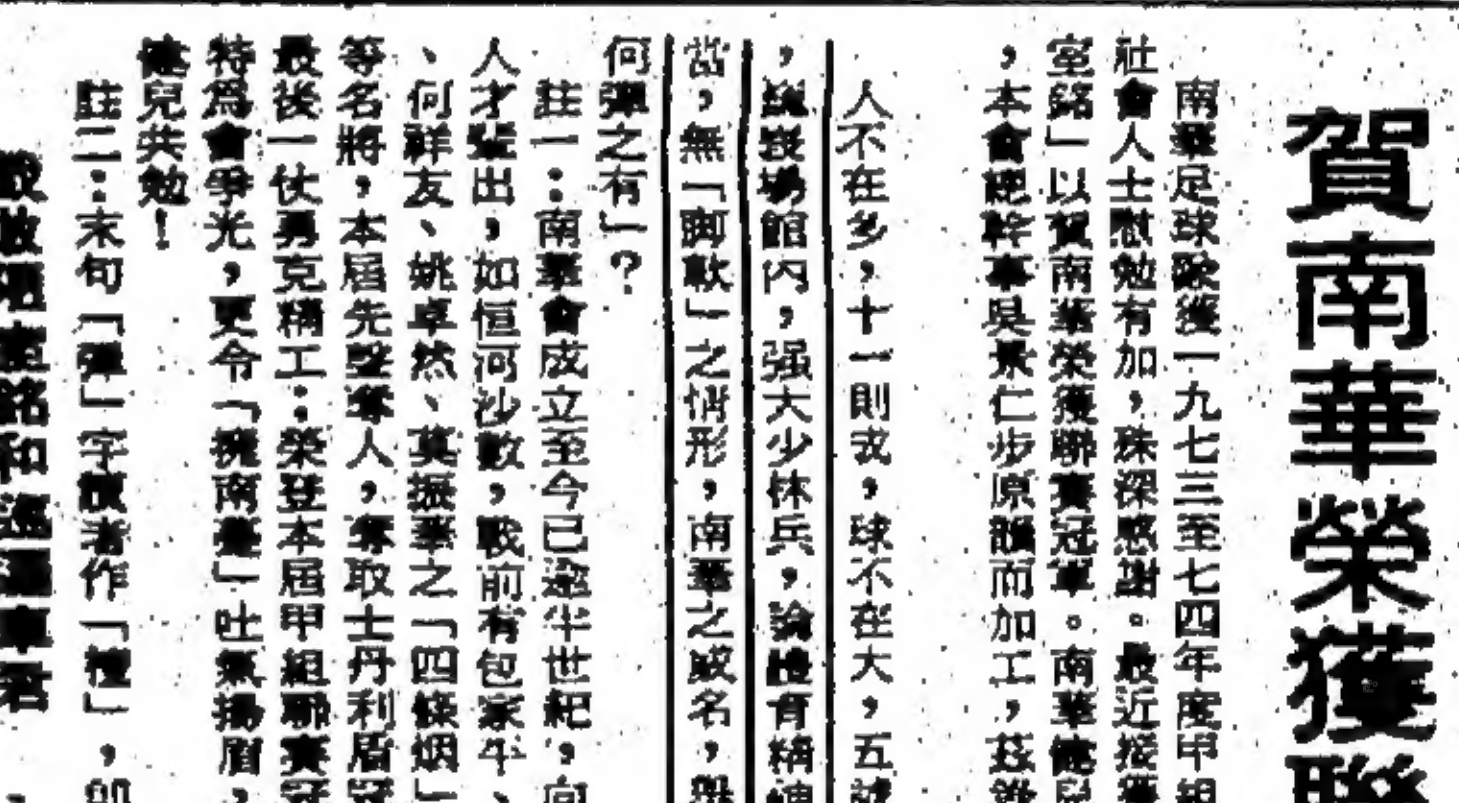 賀南華榮獲聯
南華足球隊獲一九七三至七四年度甲組
社會人士慰勉有加，殊深感謝。最近接獲
室銘」以賀南華榮獲聯賽冠軍。南華健兒
，本會總幹事吳景仁步原韻而加工，茲錄
人不在多，十一則戎，球不在大，五號
，場館內，强大少林兵，論體育精神
當，無「」之情形，南華之威名，
何彈之有」？
註一：南華會成立至今已逾半世紀，向
人才輩出，如恒河沙數，戰前有包家平、
、何祥友、姚卓然、莫振華之「四條烟」
等名將，本屆先聲奪人，奪取士丹利盾冠
最後一仗勇克精工：榮登本屆甲組聯賽冠
特爲會爭光，更令「擁南躉」吐氣揚眉，
健兒共勉！
註二：末句「彈」字讀者作「」，如
室銘和